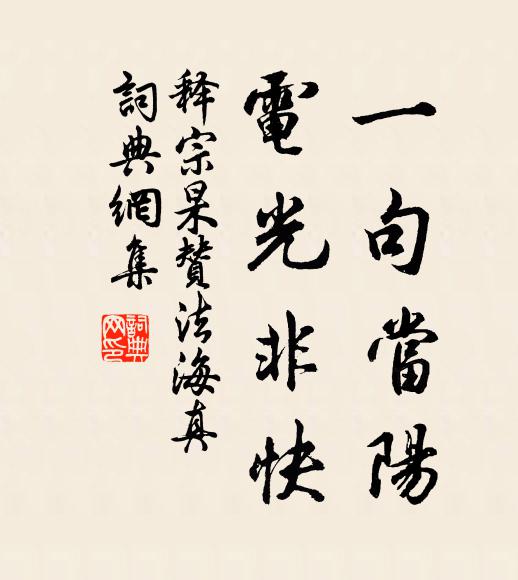 一句當陽
電光非快
释宗杲贊法海真
詞典網集
詞典網印